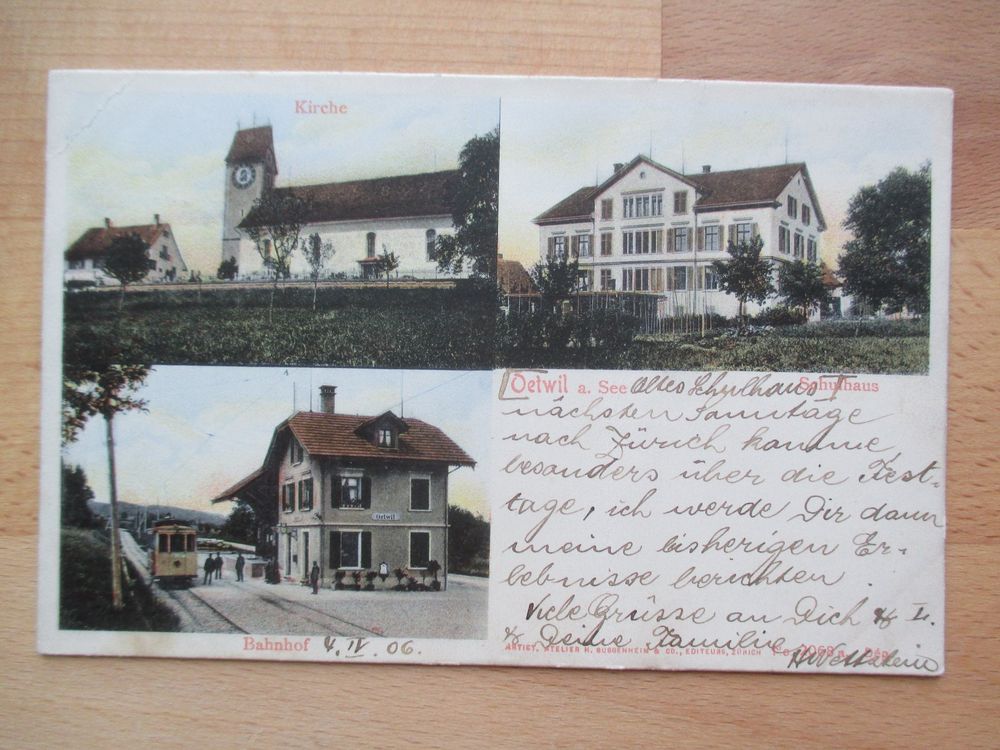 Kirche
Oetwil a. See Altes Schulhaus Schulhaus
nächsten Sonntage
nach Zürich komme,
besonders über die Fest-
tage, ich werde Dir dann
meine bisherigen Er-
lebnisse berichten.
Viele Grüsse an Dich & I.
& Deine Familie
Oetwil
Bahnhof 4. IV. 06.
ARTIST. ATELIER H. GUGGENHEIM & CO., EDITEURS, ZÜRICH No. 2068